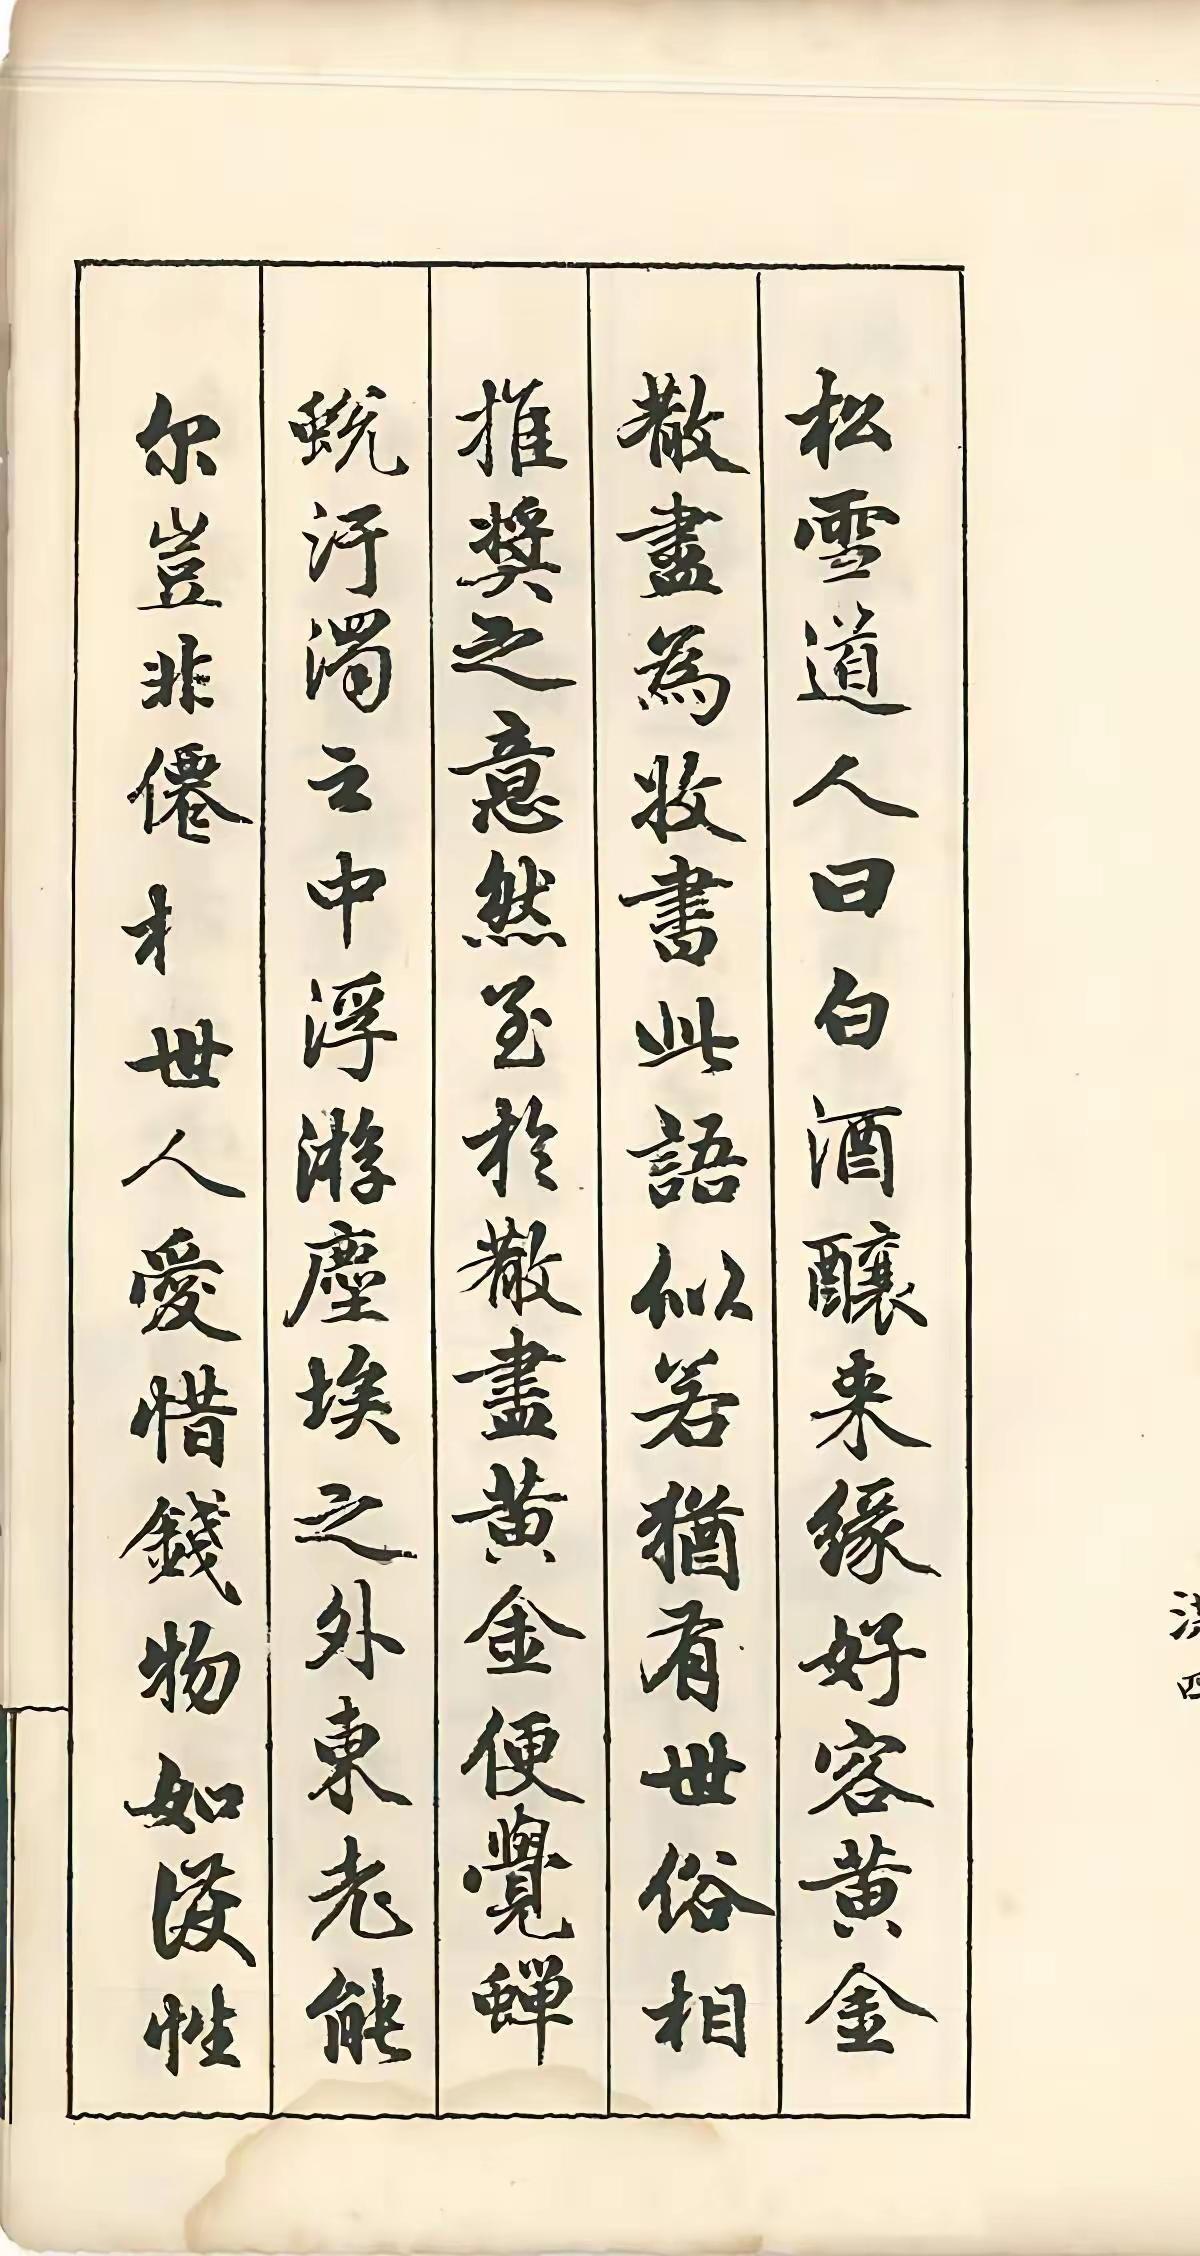 松雪道人曰白酒釀来緣好客黄金
散盡為收書此語似若猶有世俗相
推奬之意然至於散盡黄金便覺蟬
蛻汙濁之中浮游塵埃之外東老能
尔豈非僊才世人愛惜錢物如護性